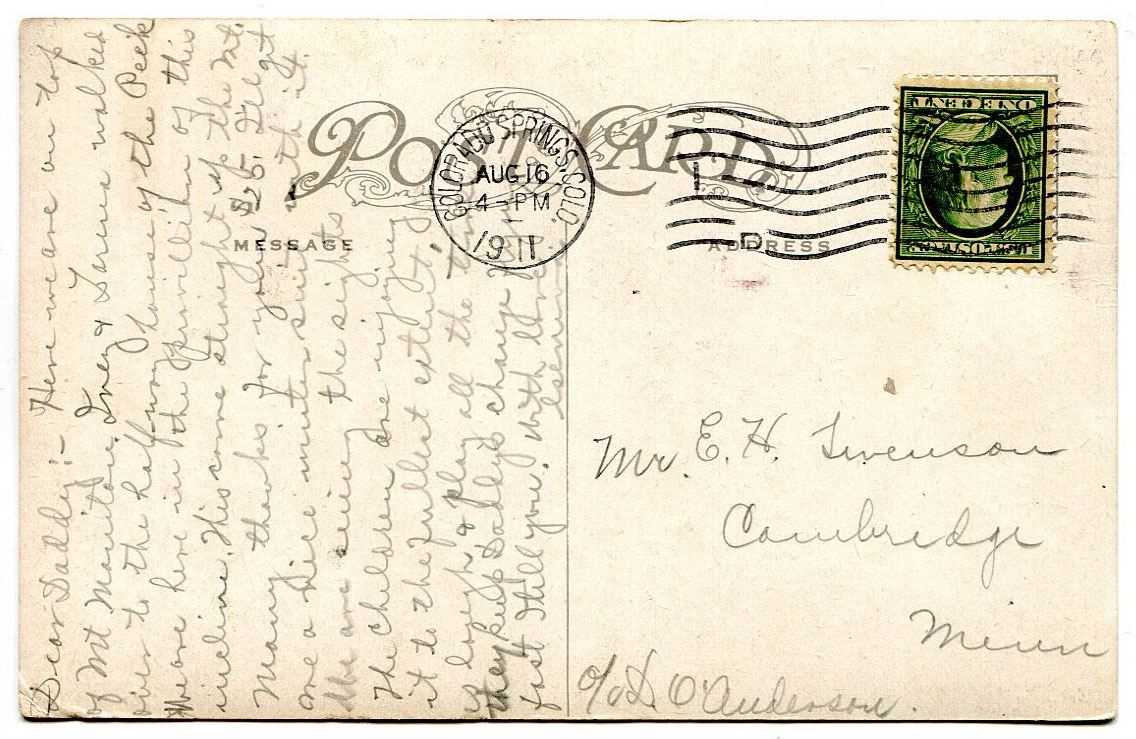 POST CARD
MESSAGE
ADDRESS
COLORADO SPRINGS, COLO.
AUG 16
4 - PM
1911
D
ONE CENT
Dear Daddy:- Here we are on top
of Mt Manitou. Ivey & Laruna walked
over to the half way house of the Peek
we are here in the pavillion of this
incline. This come straight up the Mt.
Many thanks for your $25. I'll get
me a nice winter suit with it.
We are seeing the sights
The children are injoying
it to the fullest extent,
& laugh & play all the time
they keep Daddy's change
fast I tell you. With love
Mr. E. H. Swenson
Cambridge
Minn
c/o D. O. Anderson.